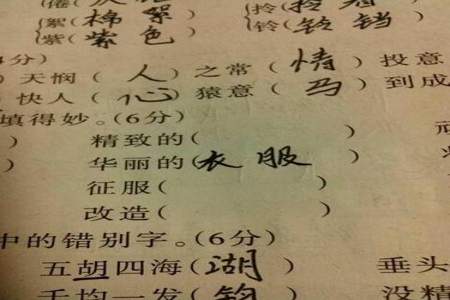 {倦(
{絮(棉絮)
{紫(紫色)
{拎(
{铃(铃铛)
分)
天悯(人)之常(情)投意
快人(心)猿意(马)到成
填得妙。(6分)
) 精致的( )
) 华丽的(衣服)
征服( )
改造( )
中的错别字。(6分)
五胡四海(湖) 垂头
千均一发(钧) 没精